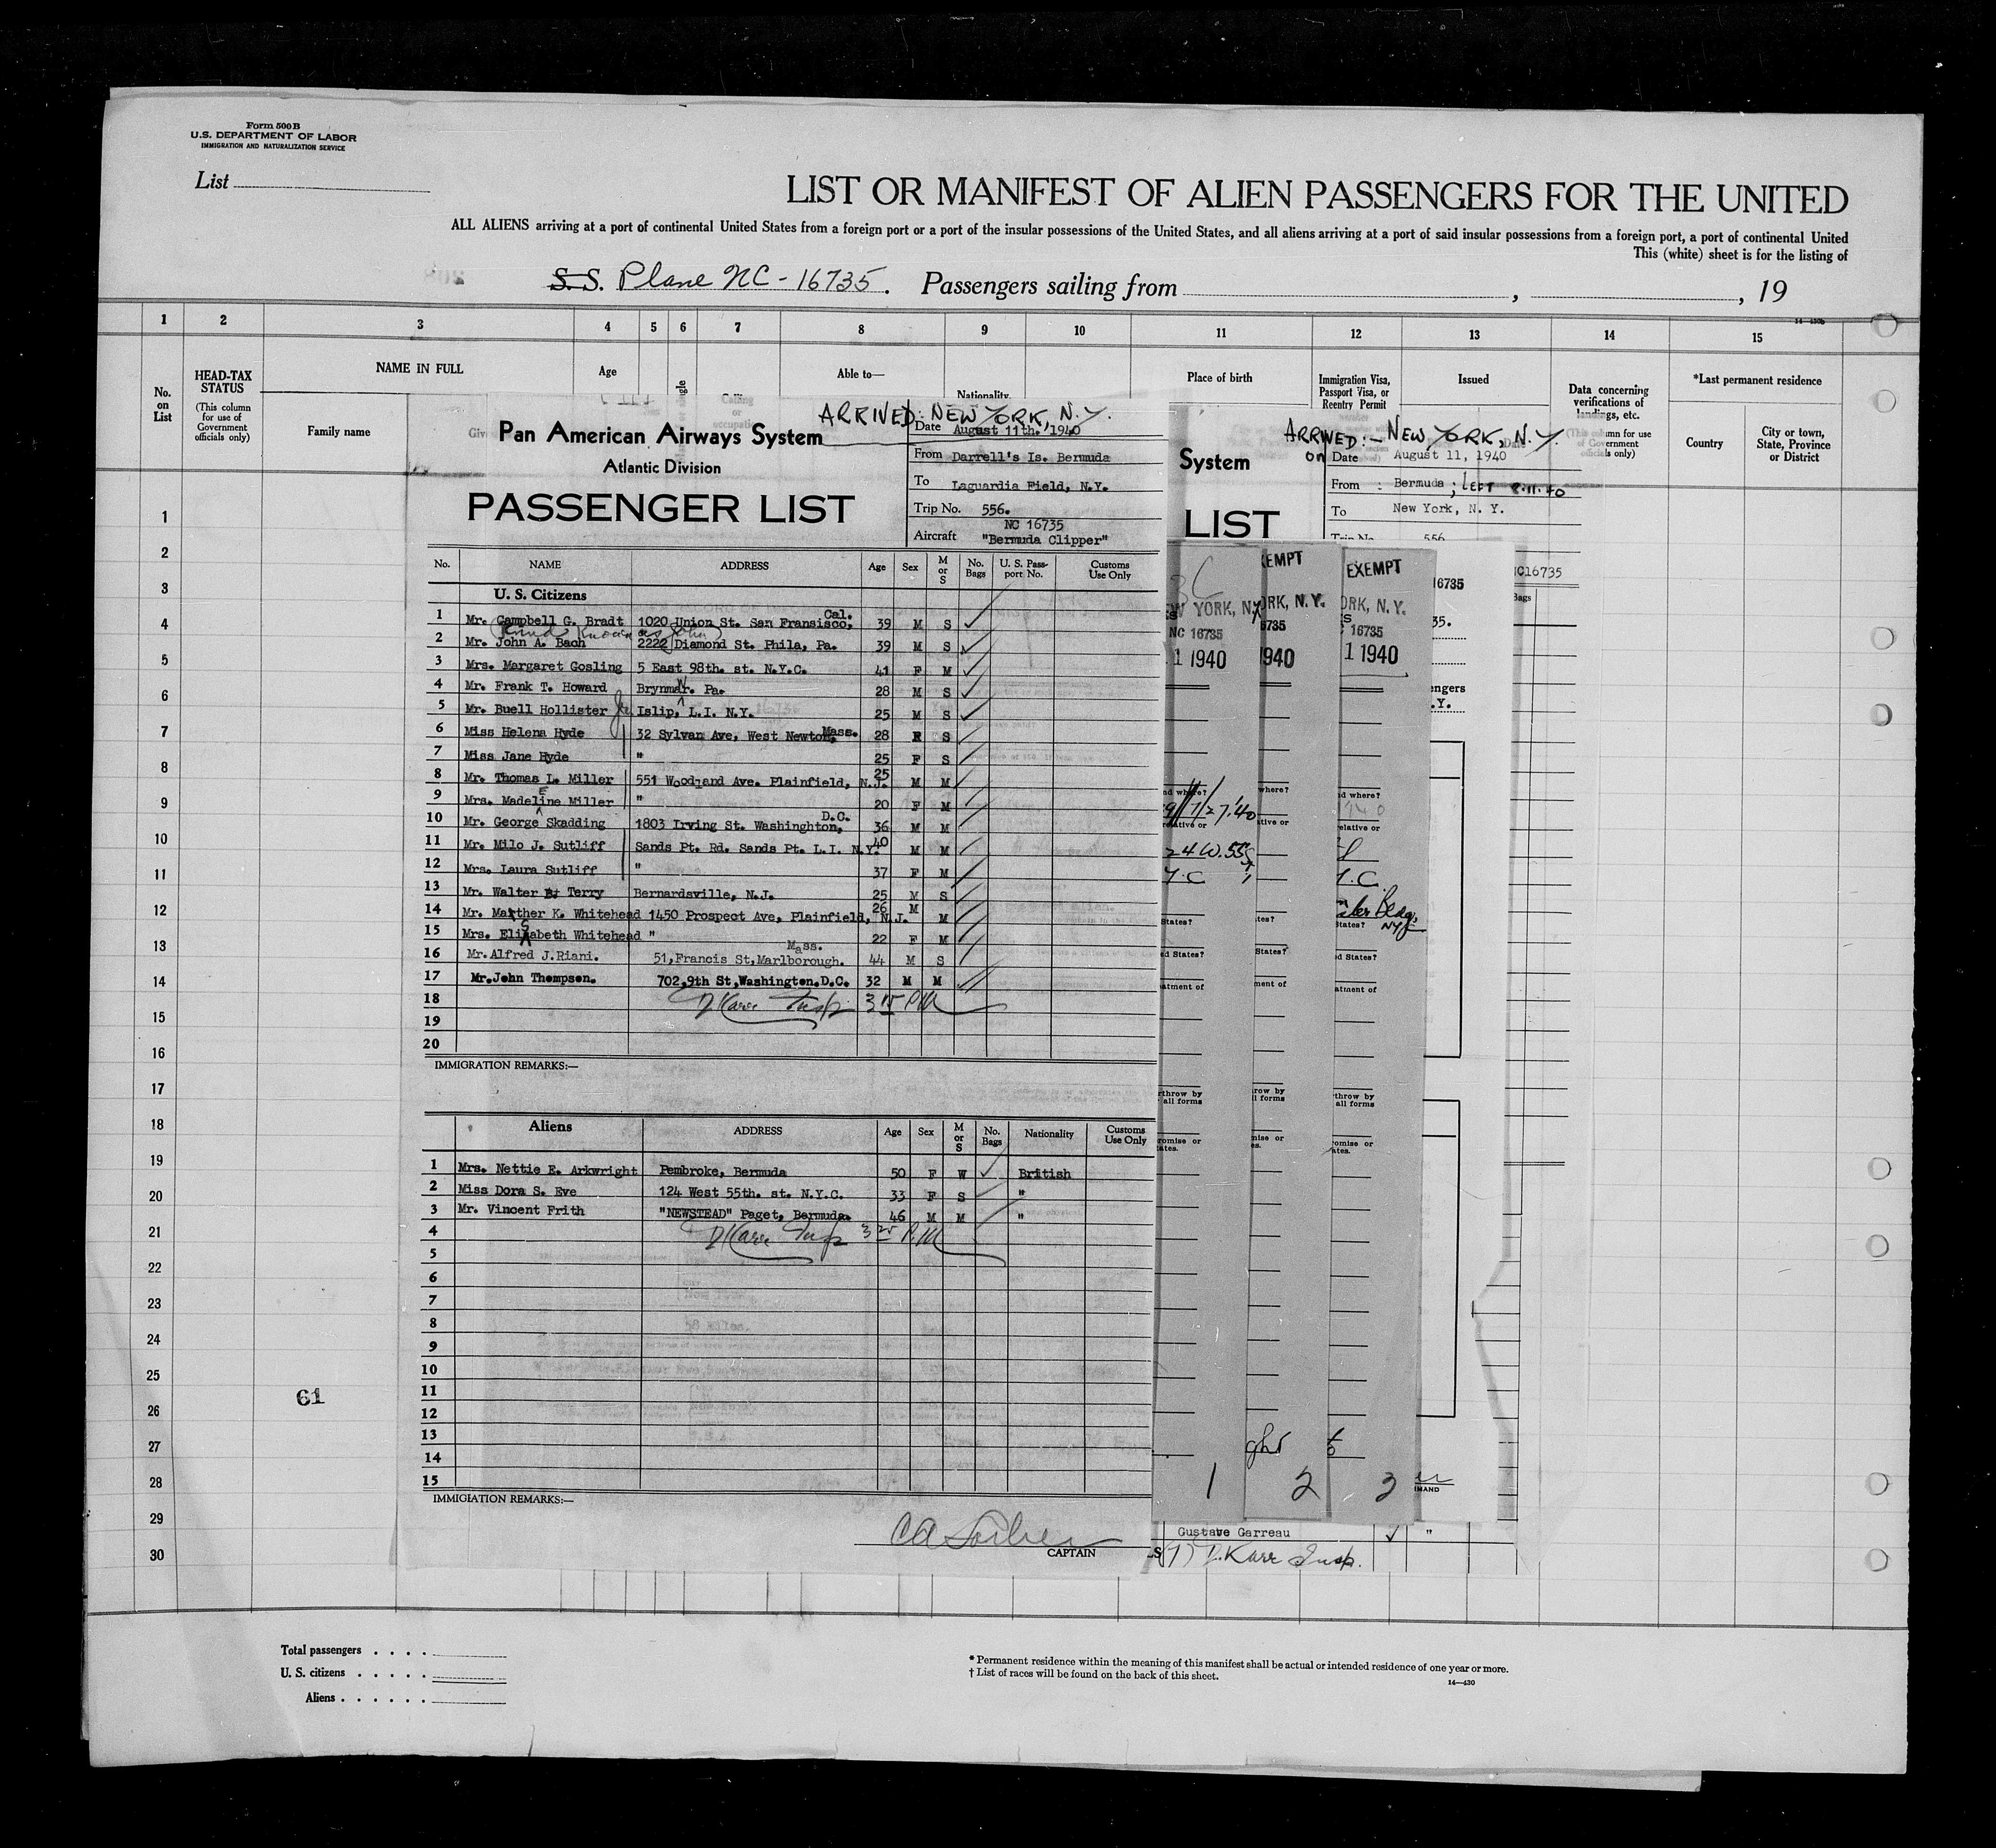 Form 500B
U.S. DEPARTMENT OF LABOR
IMMIGRATION AND NATURALIZATION SERVICE
List
LIST OR MANIFEST OF ALIEN PASSENGERS FOR THE UNITED
ALL ALIENS arriving at a port of continental United States from a foreign port or a port of the insular possessions of the United States, and all aliens arriving at a port of said insular possessions from a foreign port, a port of continental United
This (white) sheet is for the listing of
S. S. Plane NC-16735. Passengers sailing from , , 19
1 2 3 4 5 6 7 8 9 10 11 12 13 14 15
No. on List
HEAD-TAX STATUS
(This column for use of Government officials only)
NAME IN FULL
Family name
Age
Able to—
Nationality.
Place of birth
Immigration Visa, Passport Visa, or Reentry Permit
Issued
Data concerning verifications of landings, etc.
*Last permanent residence
Country
City or town, State, Province or District
ARRIVED: NEW YORK, N.Y.
Pan American Airways System
Atlantic Division
PASSENGER LIST
Date August 11th. 1940
From Darrell's Is. Bermuda
To Laguardia Field, N.Y.
Trip No. 556.
Aircraft NC 16735 "Bermuda Clipper"
No. NAME ADDRESS Age Sex M or S No. Bags U. S. Passport No. Customs Use Only
U. S. Citizens
1 Mr. Campbell G. Bradt 1020 Union St. San Fransisco, Cal. 39 M S
2 Mr. John A. Bach 2222 Diamond St. Phila, Pa. 39 M S
3 Mrs. Margaret Gosling 5 East 98th. st. N.Y.C. 41 F M
4 Mr. Frank T. Howard Brynmar. Pa. 28 M S
5 Mr. Buell Hollister Jr. Islip, L.I. N.Y. 25 M S
6 Miss Helena Hyde 32 Sylvan Ave, West Newton, Mass. 28 F S
7 Miss Jane Hyde " 25 F S
8 Mr. Thomas L. Miller 551 Woodland Ave. Plainfield, N.J. 25 M M
9 Mrs. Madeline Miller " 20 F M
10 Mr. George Skadding 1803 Irving St. Washinghton, D.C. 36 M M
11 Mr. Milo J. Sutliff Sands Pt. Rd. Sands Pt. L.I. N.Y. 40 M M
12 Mrs. Laura Sutliff " 37 F M
13 Mr. Walter Terry Bernardsville, N.J. 25 M S
14 Mr. Matther K. Whitehead 1450 Prospect Ave, Plainfield, N.J. 26 M M
15 Mrs. Elizabeth Whitehead " 22 F M
16 Mr. Alfred J. Riani. 51, Francis St, Marlborough. Mass. 44 M S
17 Mr. John Thompson. 702, 9th St, Washington. D.C. 32 M M
18 Karr Insp 3 15 PM
19
20
IMMIGRATION REMARKS:—
Aliens ADDRESS Age Sex M or S No. Bags Nationality Customs Use Only
1 Mrs. Nettie E. Arkwright Pembroke, Bermuda 50 F W British
2 Miss Dora S. Eve 124 West 55th. st. N.Y.C. 33 F S "
3 Mr. Vincent Frith "NEWSTEAD" Paget, Bermuda. 46 M M "
4 Karr Insp P.M
5
6
7
8
9
10
11
12
13
14
15
IMMIGIATION REMARKS:—
CAPTAIN
ARRIVED:- NEW YORK, N.Y.
on
System
LIST
Date August 11, 1940
From : Bermuda ; LEFT 8.11.40
To New York, N. Y.
Trip No. 556
NC16735
EXEMPT
EXEMPT
YORK, N.Y.
ORK, N. Y.
ORK, N. Y.
NC 16735
16735
1 1940
1940
1 1940
24 W. 55
Bldg.
NY
1 2 3
Gustave Garreau "
Karr Insp.
1
2
3
4
5
6
7
8
9
10
11
12
13
14
15
16
17
18
19
20
21
22
23
24
25
26
27
28
29
30
61
Total passengers . . . .
U. S. citizens . . . . .
Aliens . . . . . .
* Permanent residence within the meaning of this manifest shall be actual or intended residence of one year or more.
† List of races will be found on the back of this sheet.
14—430